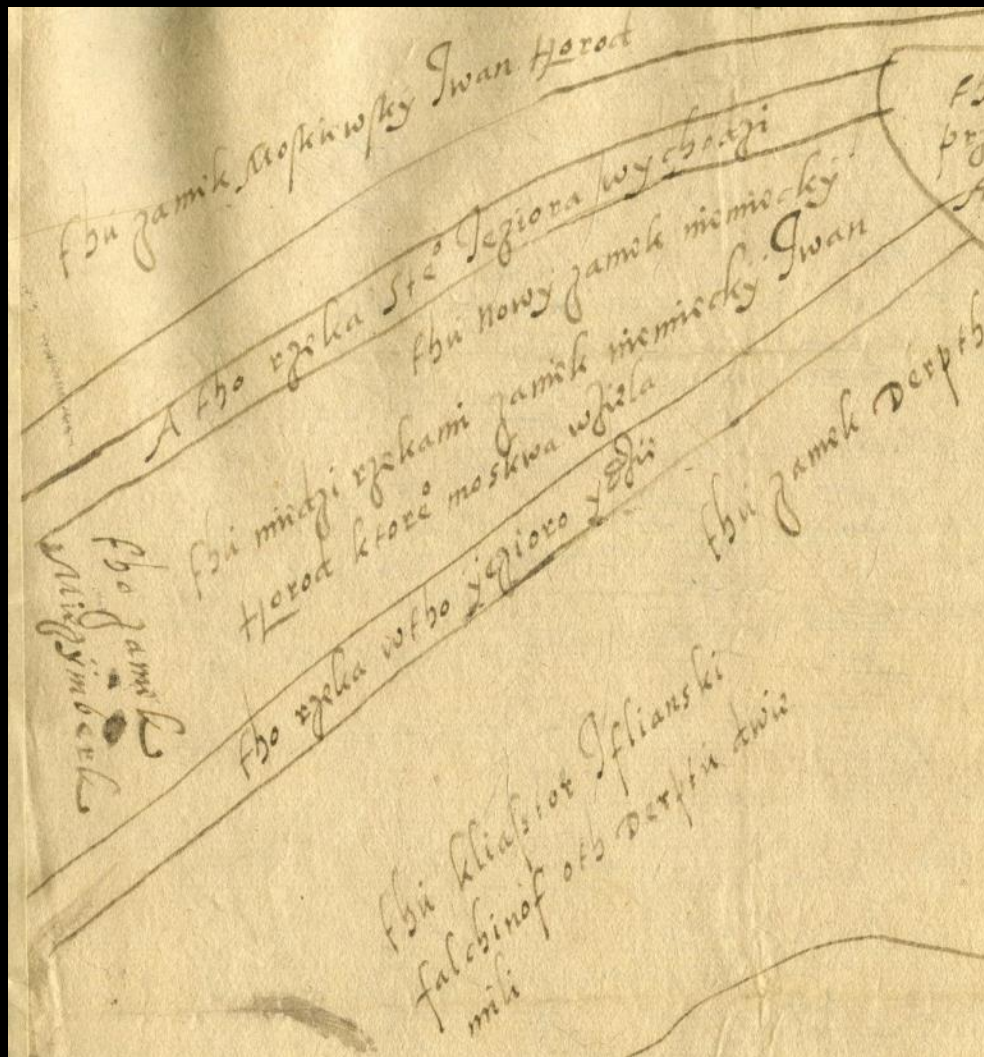 thu zamek Moskiewsky Iwan Horod
A tho rzeka Steº Jeziora wychodzi
thu Nowy zamek niemiecky
thu miedzi rzekami zamek niemiecky Iwan
Horod ktoreº moskwa wziela
tho rzeka wtho yezioro ydzie
tho zamek
thu zamek Derpth
thu kliasztor Iflianski
falchinof oth Derptu dwie
mili